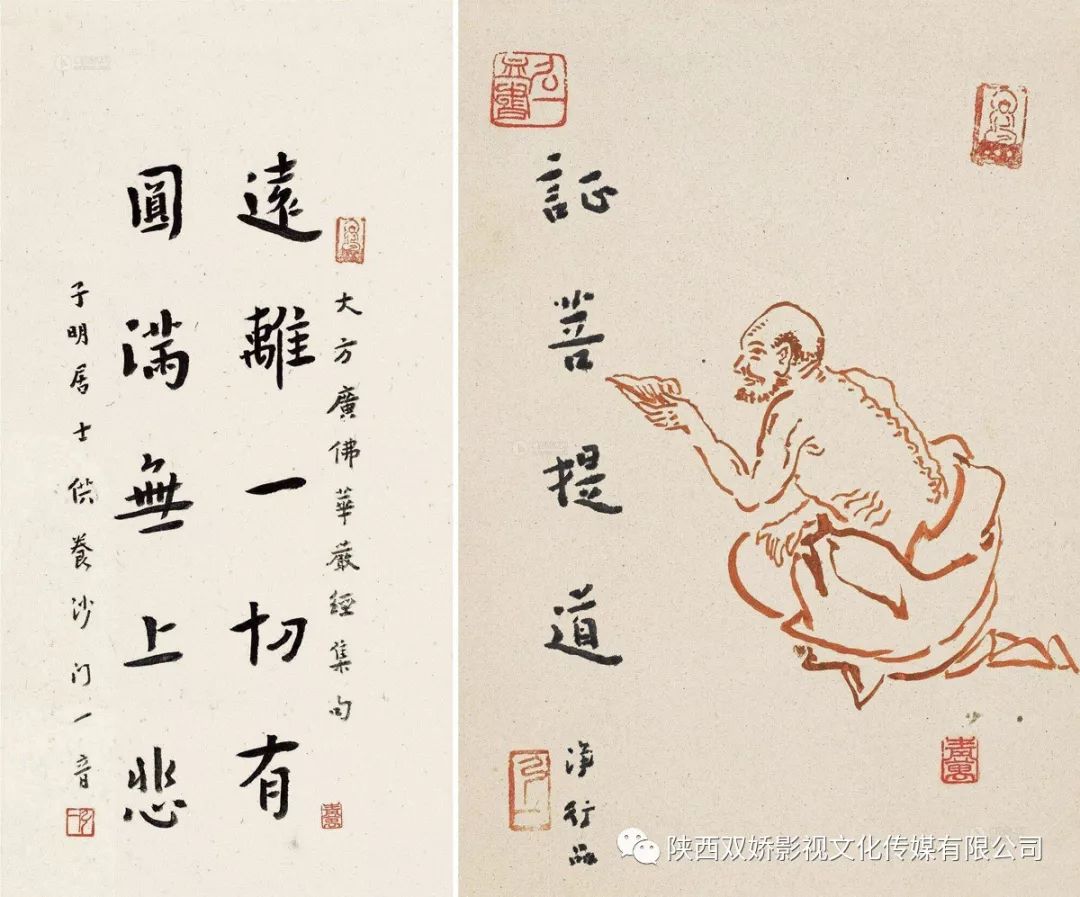 大方廣佛華嚴經集句
遠離一切有
圓滿無上悲
子明居士供養沙门一音
証菩提道
净行品
弘一
陕西双娇影视文化传媒有限公司